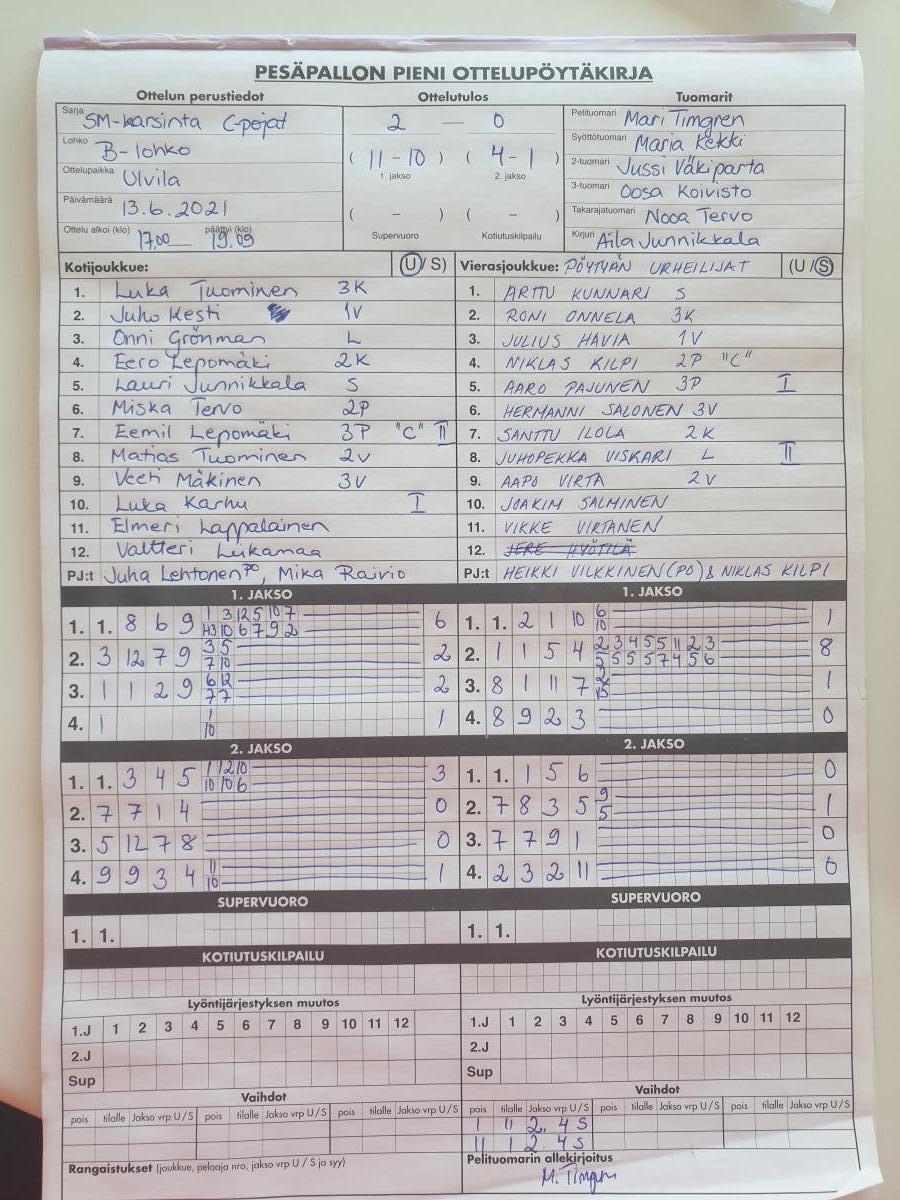 PESÄPALLON PIENI OTTELUPÖYTÄKIRJA
Ottelun perustiedot
Sarja SM-karsinta C-pojat
Lohko B-lohko
Ottelupaikka Ulvila
Päivämäärä 13.6.2021
Ottelu alkoi (klo) 17.00 päättyi (klo) 19.09
Ottelutulos
2 — 0
( 11 - 10 ) ( 4 - 1 )
1. jakso 2. jakso
( - ) ( - )
Supervuoro Kotiutuskilpailu
Tuomarit
Pelituomari Mari Timgren
Syöttötuomari Maria Kekki
2-tuomari Jussi Väkiparta
3-tuomari Oosa Koivisto
Takarajatuomari Nooa Tervo
Kirjuri Aila Junnikkala
Kotijoukkue: (U/S)
1. Luka Tuominen 3K
2. Juho Kesti 1V
3. Onni Grönman L
4. Eero Lepomäki 2K
5. Lauri Junnikkala S
6. Miska Tervo 2P
7. Eemil Lepomäki 3P "C" II
8. Matias Tuominen 2V
9. Veeti Mäkinen 3V
10. Luka Karhu I
11. Elmeri Lappalainen
12. Valtteri Liikamaa
PJ:t Juha Lehtonen PO, Mika Raivio
Vierasjoukkue: PÖYTYÄN URHEILIJAT (U/S)
1. ARTTU KUNNARI S
2. RONI ONNELA 3K
3. JULIUS HAVIA 1V
4. NIKLAS KILPI 2P "C"
5. AARO PAJUNEN 3P I
6. HERMANNI SALONEN 3V
7. SANTTU ILOLA 2K
8. JUHOPEKKA VISKARI L II
9. AAPO VIRTA 2V
10. JOAKIM SALMINEN
11. VIKKE VIRTANEN
12. JERE HYÖTILÄ
PJ:t HEIKKI VILKKINEN (PO) & NIKLAS KILPI
1. JAKSO
1. 1. 8 6 9 1 3 12 5 10 7 6
10 6 7 9 2
2. 3 12 7 9 3 5 2
7 10
3. 1 1 2 9 6 12 2
7 7
4. 1 1 1
10
2. JAKSO
1. 1. 3 4 5 1 12 10 3
10 10 6
2. 7 7 1 4 0
3. 5 12 7 8 0
4. 9 9 3 4 11 1
10
SUPERVUORO
1. 1.
KOTIUTUSKILPAILU
Lyöntijärjestyksen muutos
1.J 1 2 3 4 5 6 7 8 9 10 11 12
2.J
Sup
Vaihdot
pois tilalle Jakso vrp U/S pois tilalle Jakso vrp U/S pois tilalle Jakso vrp U/S
Rangaistukset (joukkue, pelaaja nro, jakso vrp U/S ja syy)
1. JAKSO
1. 1. 2 1 10 6 1
10
2. 1 1 5 4 2 3 4 5 5 11 2 3 8
5 5 5 5 7 4 5 6
3. 8 1 11 7 1
4. 8 9 2 3 0
2. JAKSO
1. 1. 1 5 6 0
2. 7 8 3 5 9 1
5
3. 7 7 9 1 0
4. 2 3 2 11 0
SUPERVUORO
1. 1.
KOTIUTUSKILPAILU
Lyöntijärjestyksen muutos
1.J 1 2 3 4 5 6 7 8 9 10 11 12
2.J
Sup
Vaihdot
pois tilalle Jakso vrp U/S pois tilalle Jakso vrp U/S pois tilalle Jakso vrp U/S
1 11 2. 4 S
11 1 2. 4 S
Pelituomarin allekirjoitus
M. Timgren